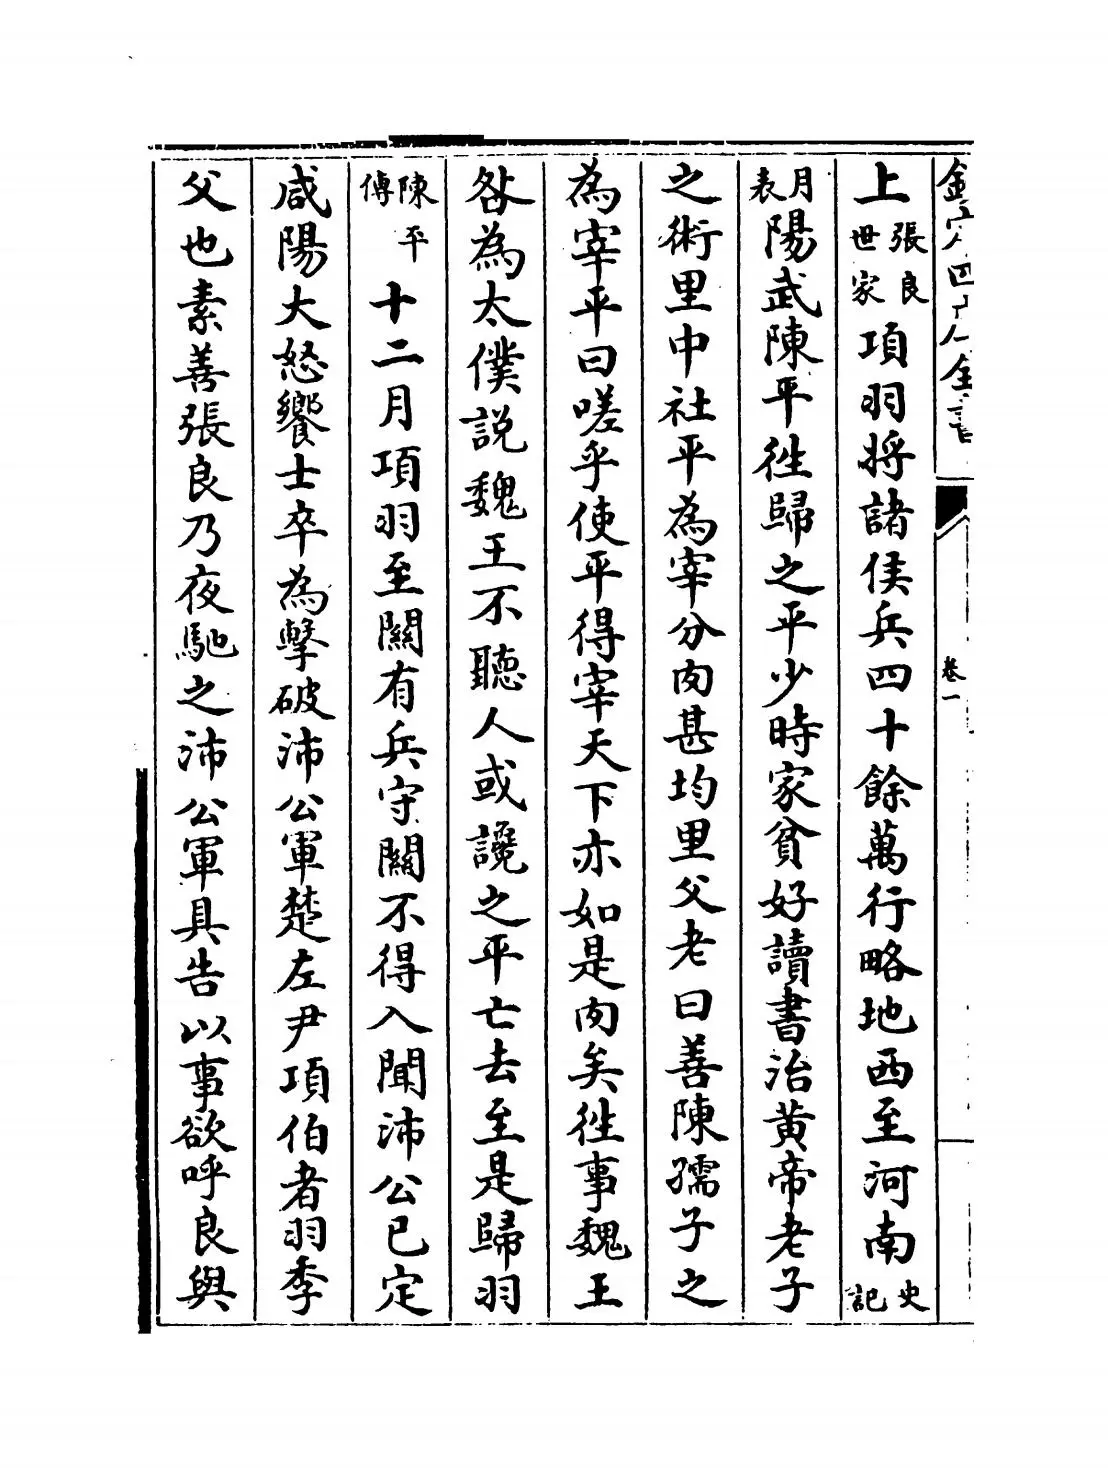 欽定四庫全書
卷一
上張良世家項羽將諸侯兵四十餘萬行略地西至河南史記
月表陽武陳平徃歸之平少時家貧好讀書治黃帝老子
之術里中社平為宰分肉甚均里父老曰善陳孺子之
為宰平曰嗟乎使平得宰天下亦如是肉矣徃事魏王
咎為太僕説魏王不聽人或讒之平亡去至是歸羽
陳平傳十二月項羽至關有兵守關不得入聞沛公已定
咸陽大怒饗士卒為擊破沛公軍楚左尹項伯者羽季
父也素善張良乃夜馳之沛公軍具告以事欲呼良與